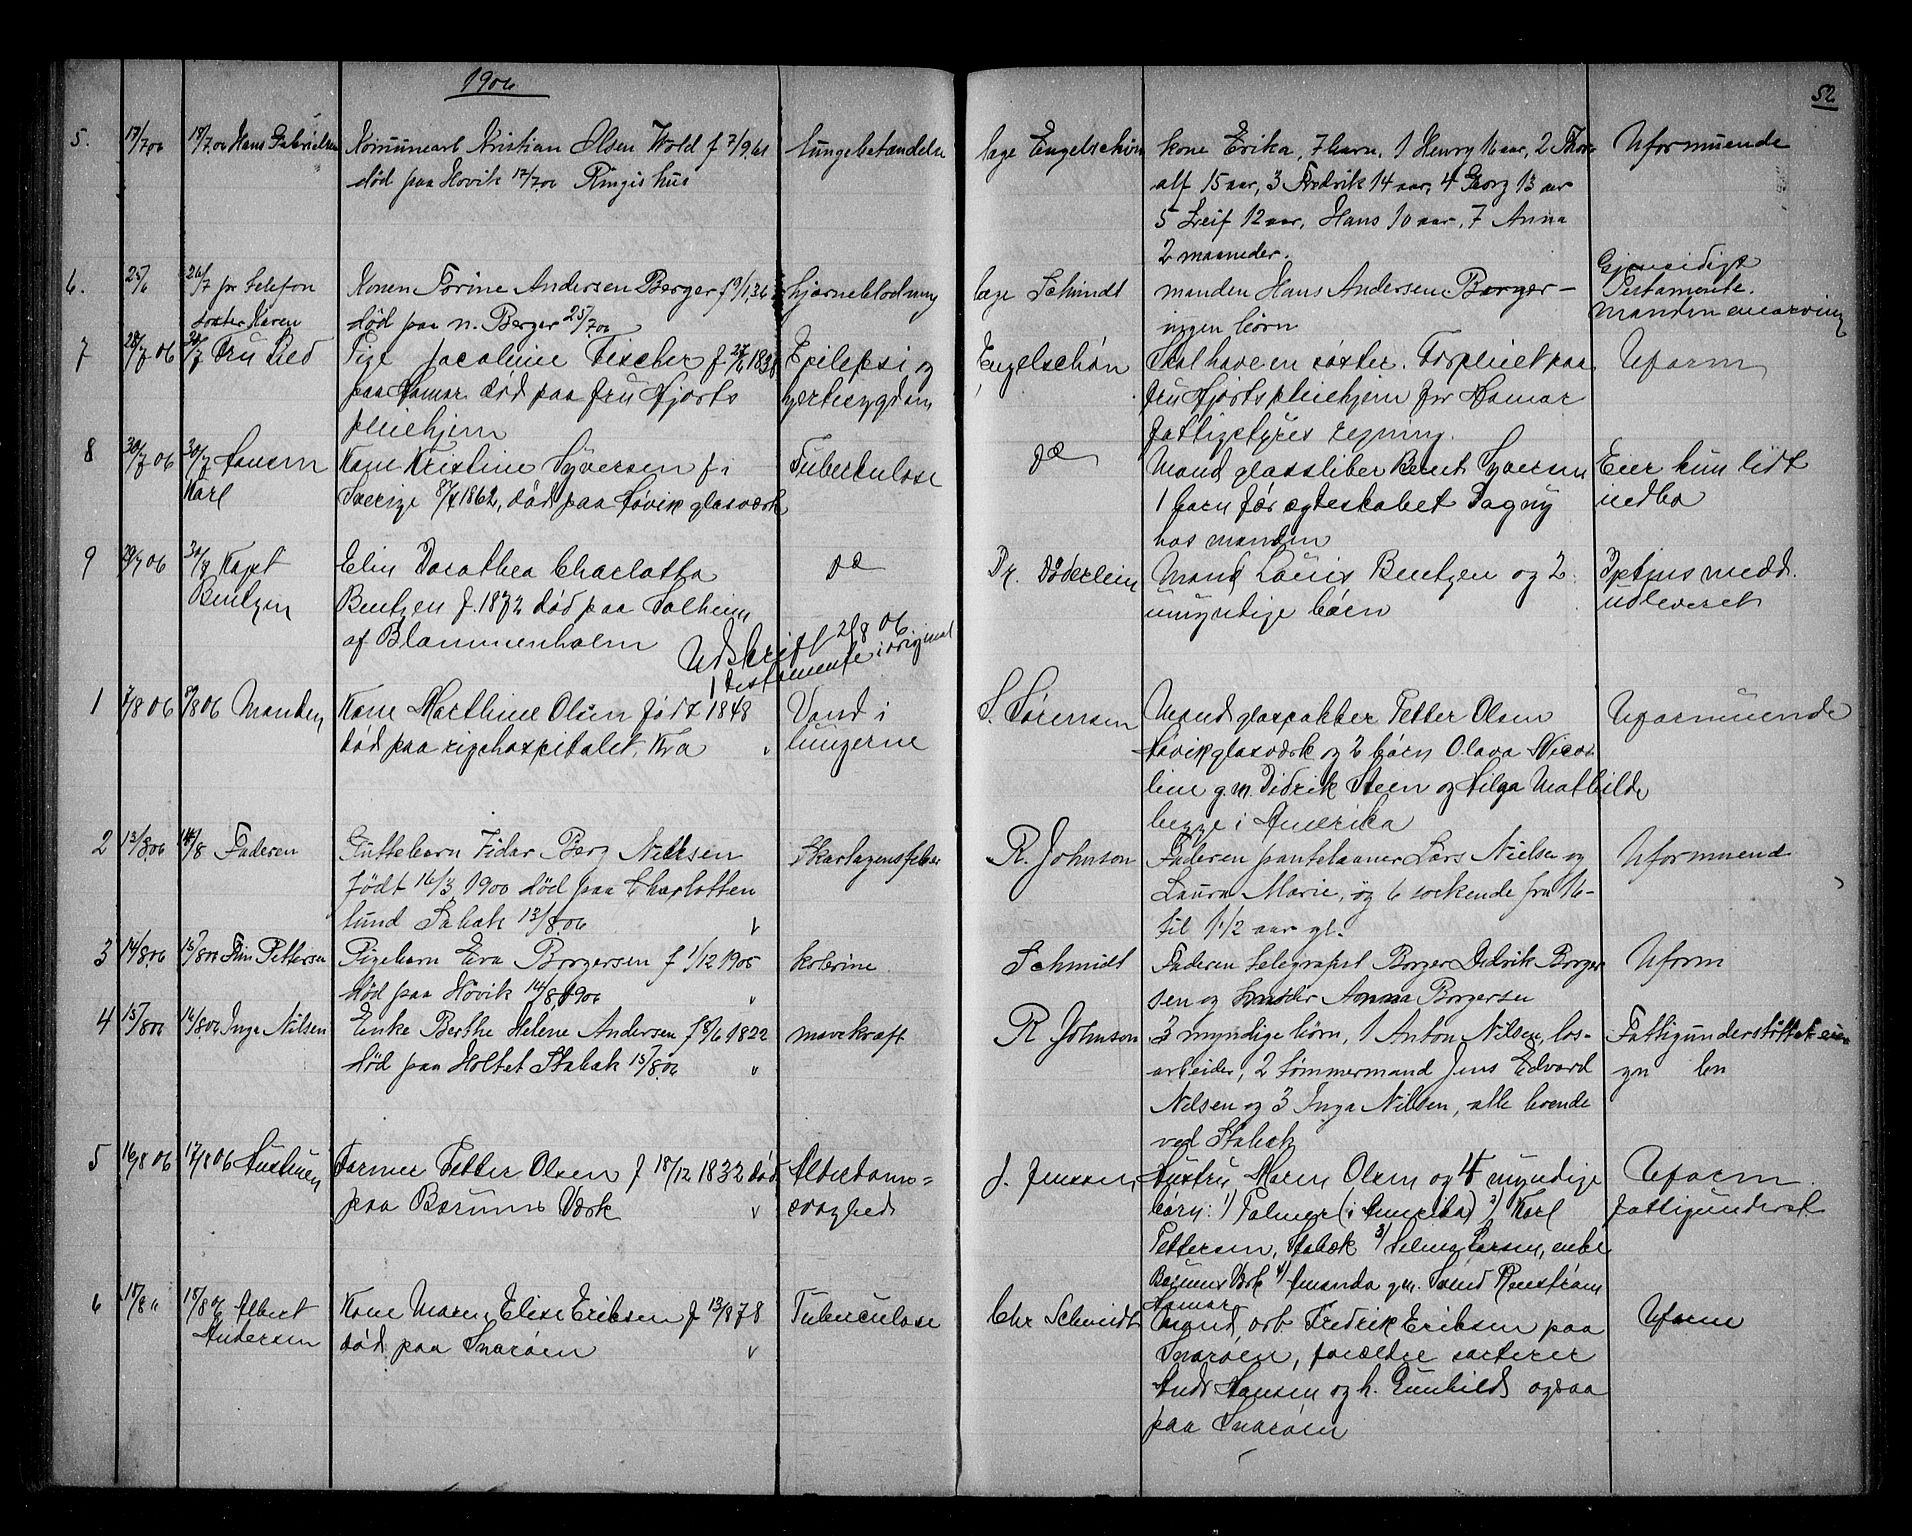 1906
52
5. 17/7 06 18/7 06 Hans Gabrielsen Kommunearb Kristian Olsen Wold f 7/9 61 lungebetændelse læge Engelschiøn kone Erika, 7 barn, 1 Henry 16 aar, 2 Thor- Uformuende
død paa Høvik 17/7 06 Ringis hus alf 15 aar, 3 Fredrik 14 aar, 4 Georg 13 aar
5 Leif 12 aar, Hans 10 aar, 7 Anna
2 maaneder.
6. 25/6 26/7 pr telefon Konen Torine Andersen Berger f hjerneblødning læge Schmidt manden Hans Andersen Berger – Gjensidigt
søster Karen død paa n. Berger 25/7 06 ingen børn Testamente.
manden enearving
7 28/7 06 30/7 Fru Lied Pige Jacobine Fischer f 1838 Epilepsi og Engelschøn Skal have en søster. Forpleiet paa Uform
paa Hamar død paa fru Hjorts hjertesygdom fru Hjorts pleiehjem for Hamar
pleiehjem fattigstyres regning.
8 30/7 06 30/7 Sønnen Kone Kristine Syversen f i Tuberkulose do Mand glassliber Bernt Syversen Eier kun lidt
Karl Sverige 1862, død paa Høvik glasværk 1 barn før egteskabet Dagny indbo
hos manden
9 29/7 06 30/7 Kapt Elin Dorothea Charlotta do Dr. Döderlein Mand Louis Bentzen og 2 Bentzen f. 1872 død paa Solheim umyndige børn udleveret
Bentzen
af Blommenholm
Udskrift 21/8 06.
1 testamente i original
1 7/8 06 8/8 06 Manden Kone Marthine Olsen født 1848 Vand i S. Sørensen Mand glaspakker Petter Olsen Uformuende
død paa rigshospitalet, Kra lungerne Høvik glasværk og 2 børn Olava Nico-
line g. m. Didrik Steen og Hilga Mathilde
begge i Amerika
2 13/8 06 14/8 Faderen Guttebarn Vidar Berg Nielsen Skarlagensfeber R. Johnson Faderen pantelaaner Lars Nielsen og Uformuend
født 16/3 1900 død paa Charlotten Laura Marie, og 6 søskende fra 16-
lund Stabæk 13/8 06 til 1 1/2 aar gl.
3 14/8 06 15/8 06 Finn Pettersen Pigebarn Eva Borgersen f 1/12 1905 kolerine Schmidt Faderen telegrafist Borger Didrik Borger Uform
død paa Høvik 14/8 1906 sen og hustru Anna Borgersen
4 15/8 06 16/8 06 Inga Nilsen Enke Berthe Helene Andersen f 8/6 1822 mavekræft R Johnson 3 myndige børn, 1 Anton Nilsen, løs- Fattigunderstøttet
død paa Holtet Stabæk 15/8 06 arbeider, 2 tømmermand Jens Edvard
Nilsen og 3 Inga Nilsen, alle boende
ved Stabæk
5 16/8 06 17/8 06 Hustruen Former Petter Olsen f 18/12 1832 død Alderdoms= J. Jenssen Hustru Maren Olsen og 4 myndige Uform.
paa Bærums Værk svaghed børn: 1) Palmer (i Amerika) 2) Karl fattigunderst.
Pettersen, Stabæk 3) Selma Larsen, enke
Bærums Værk 4) Amanda g. m. Svend Renstrøm
Hamar
6 18/8 " 18/8 06 Albert Kone Maren Elise Eriksen f 13/9 78 Tuberculose Chr Schmidt Mand, arb. Fredrik Eriksen paa Uform
Andersen død paa Snarøen Snarøen, forældre sorterer
Andr Hansen og h. Gunhild ogsaa
paa Snarøen